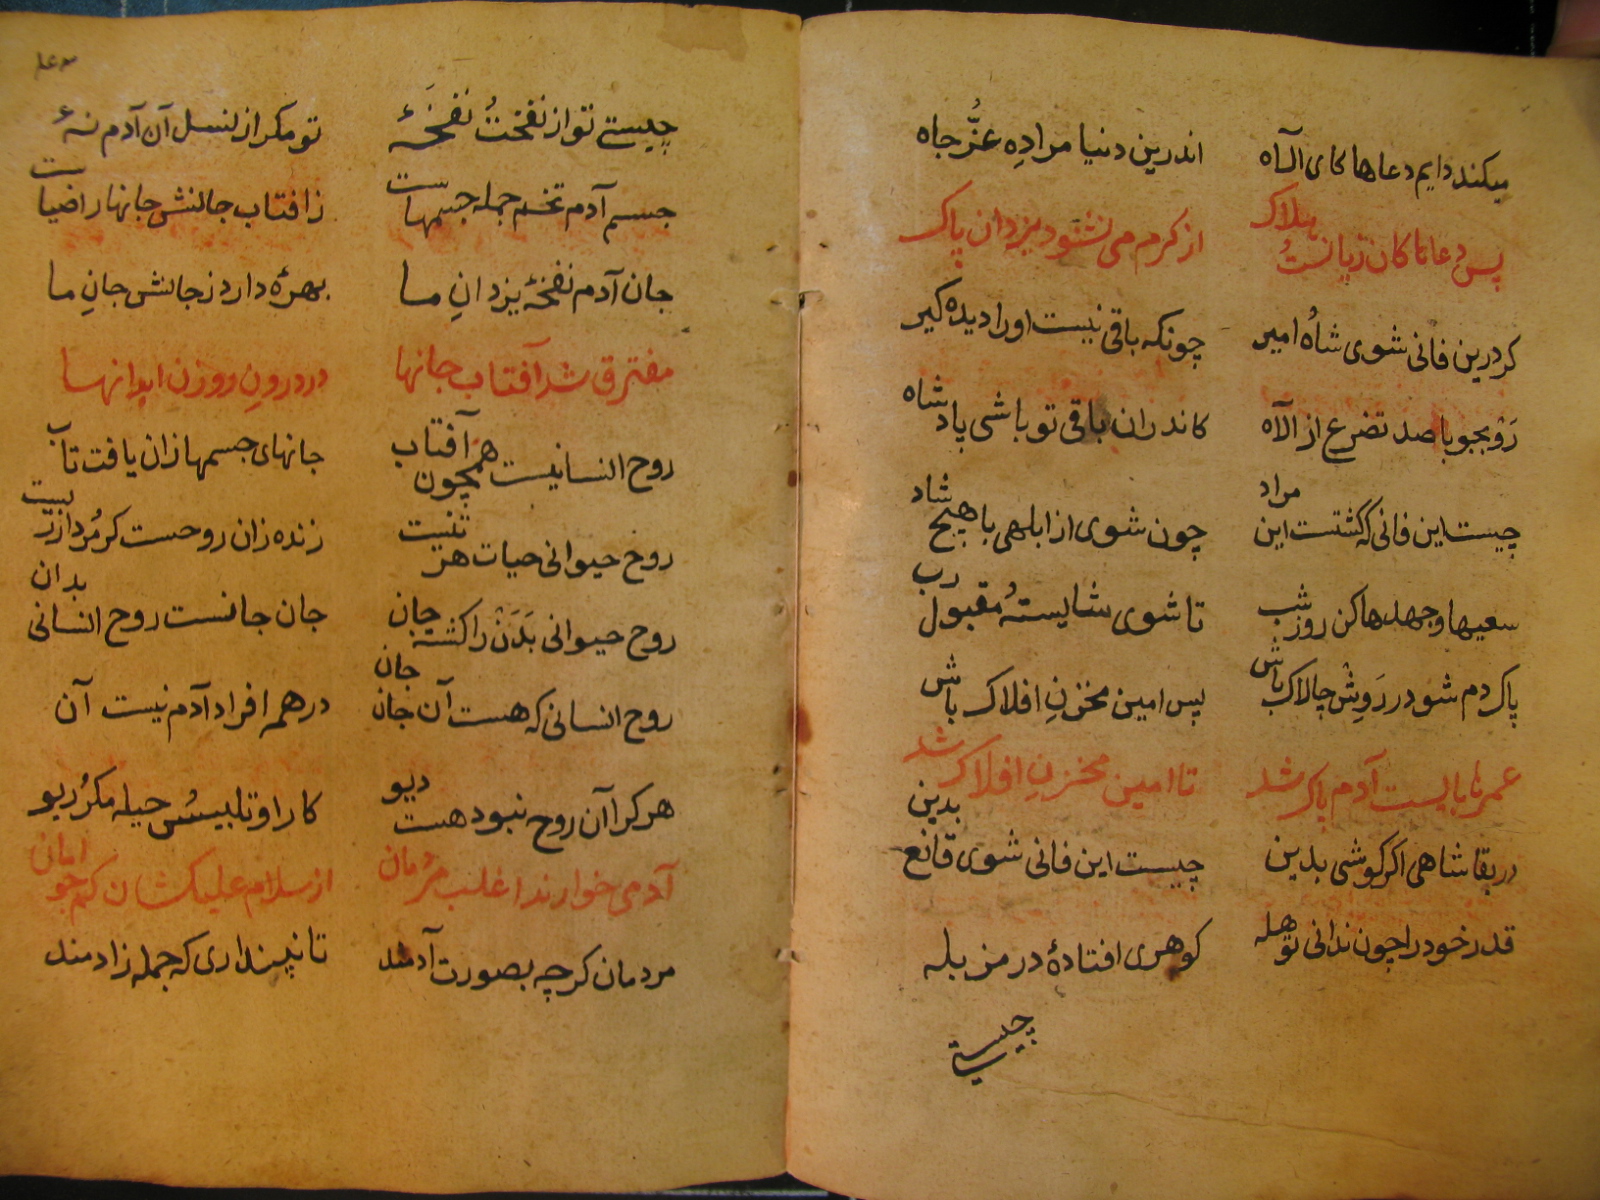 میکند دایم دعاها کای الآه اندرین دنیا مرا دِه عزُّ جاه
پس دعاها کان زیانستُ هلاک از کرم می نشنود یزدان پاک
کر درین فانی شوی شاهُ امیر چونکه باقی نیست او را دیده کیر
رَوْ بجو با صد تضرع از الآه کاندران باقی تو باشی پادشاه
چیست این فانی که کشتست این مراد چون شوی از ابلهی با هیچ شاد
سعیها و جهدها کن روز شب تا شوی شایستهٔ مقبول رب
پاک دم شو در رَوِشْ چالاک باش پس امین مخزنِ افلاک باش
عمرها بایست آدم پاک شد تا امین مخزنِ افلاک شد
در بقا شاهی اکر کوشی بدین چیست این فانی شوی قانع بدین
قدر خود را چون ندانی تو هله کوهری افتادهٔ در مزبله
چیستی
۱۴۳
چیستی تو از نفختُ نفخَهٔ تو مکر از نسل آن آدم نهٔ
جسم آدم تخم جمله جسمهاست ز افتاب جانش جانها را ضیاست
جان آدم نفخهٔ یزدانِ ما بهرهٔ دارد ز جانش جانِ ما
مفترق شد آفتاب جانها در درونِ روزن ابدانها
روح انسانیست همچون آفتاب جانهای جسمها زان یافت تاب
روح حیوانی حیات هر تنیست زنده زان روحست کر مُرد ار زیست
روح حیوانی بَدَنْ را کشته جان جان جانست روح انسانی بدان
روح انسانی که هست آن جان جان در همه افراد آدم نیست آن
هر کرا آن روح نبود هست دیو کار او تلبیسُ حیله مکرُ ریو
آدمی خوارند اغلب مردمان از سلام علیکشان کم جو امان
مردمان کرچه بصورت آدمند تا نپنداری که جمله زادمند